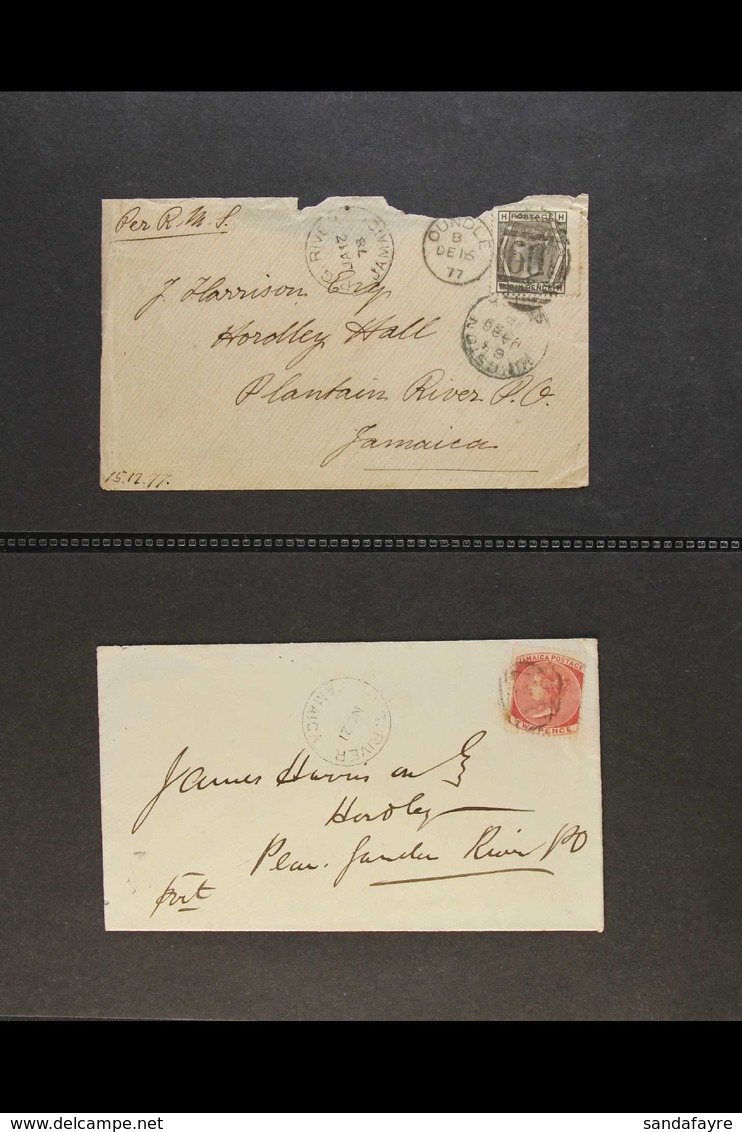 Per R.M.S.
P.G. RIVER
JA 12
78
JAMAICA
OUNDLE
B
DE 15
77
H POSTAGE H
J. Harrison Esq
Hordley Hall
Plantain River P.O.
Jamaica
15.12.77.
JAMAICA POSTAGE
TWO PENCE
RIVER
NO 21
JAMAICA
James Harrison Esq
Hordley
Plan. Garden River PO
sandafayre